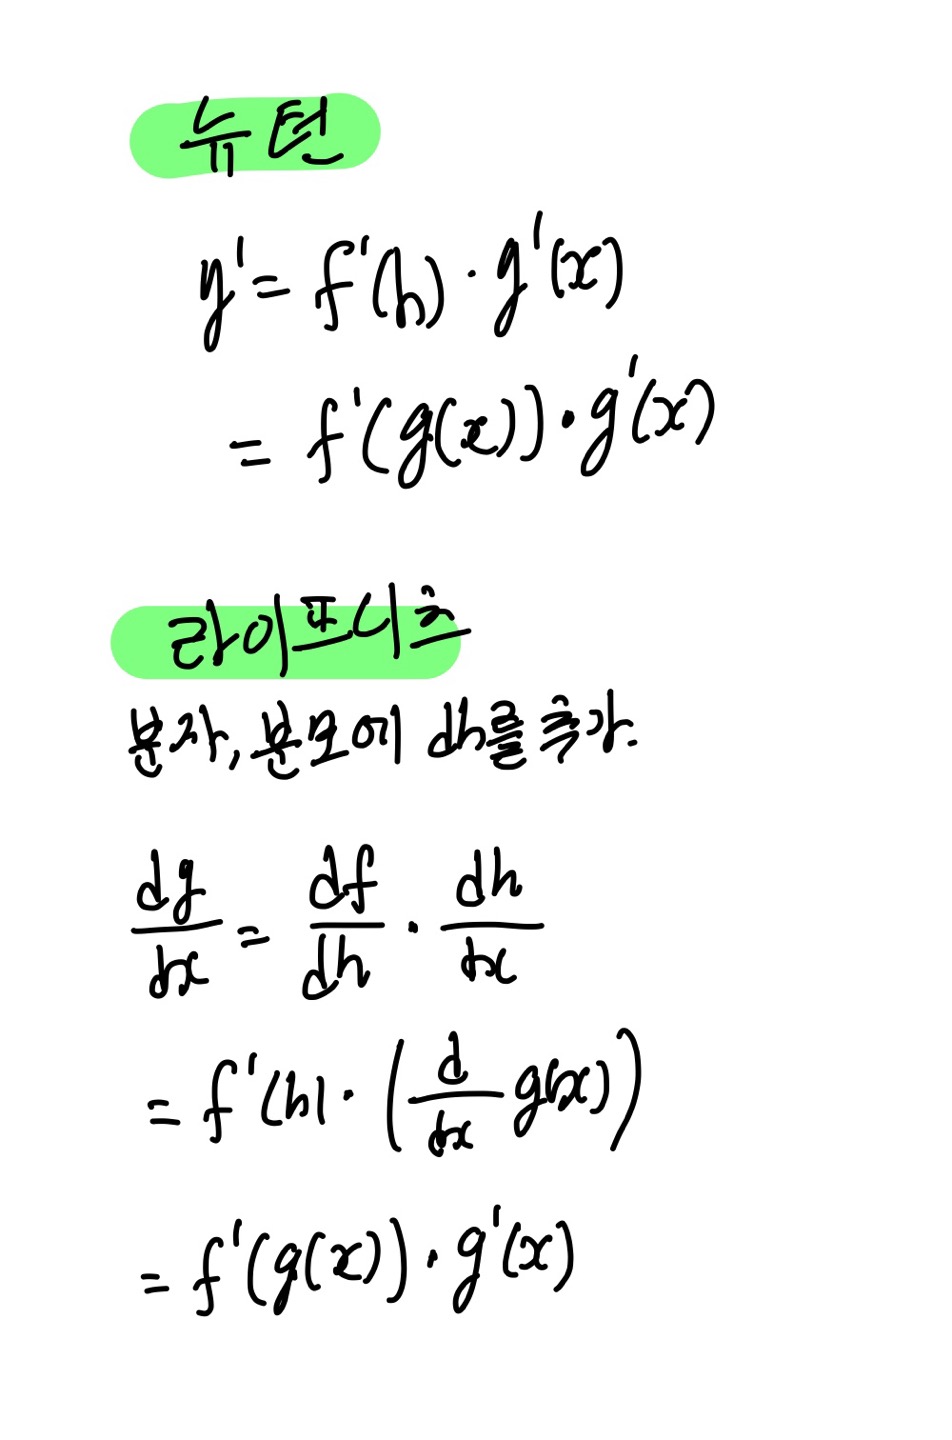 뉴턴
y' = f'(h) · g'(x)
= f'(g(x)) · g'(x)
라이프니츠
분자, 분모에 dh를 추가.
dy/dx = df/dh · dh/dx
= f'(h) · (d/dx g(x))
= f'(g(x)) · g'(x)